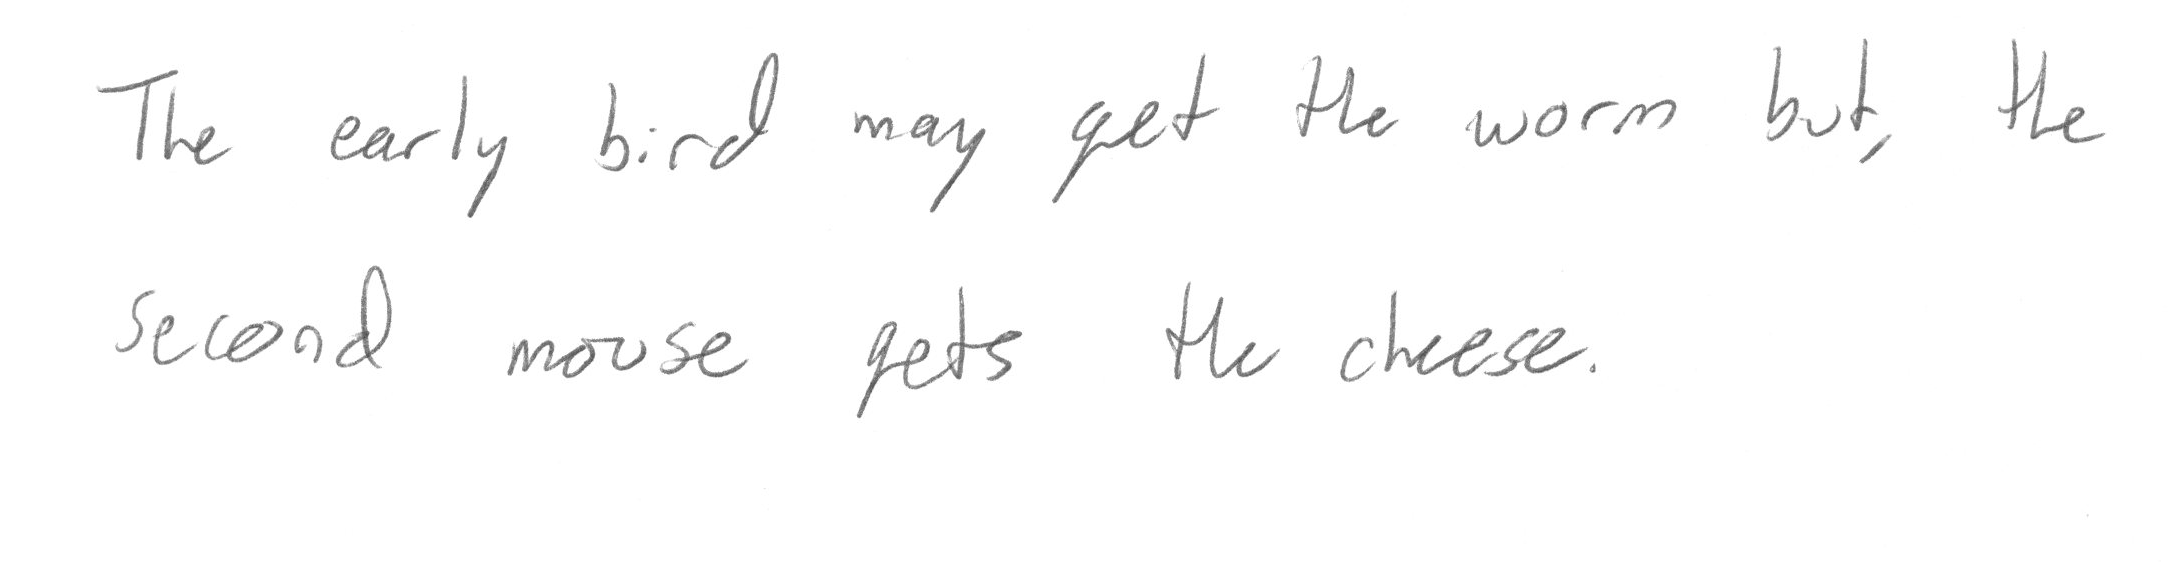 The early bird may get the worm but, the
second mouse gets the cheese.